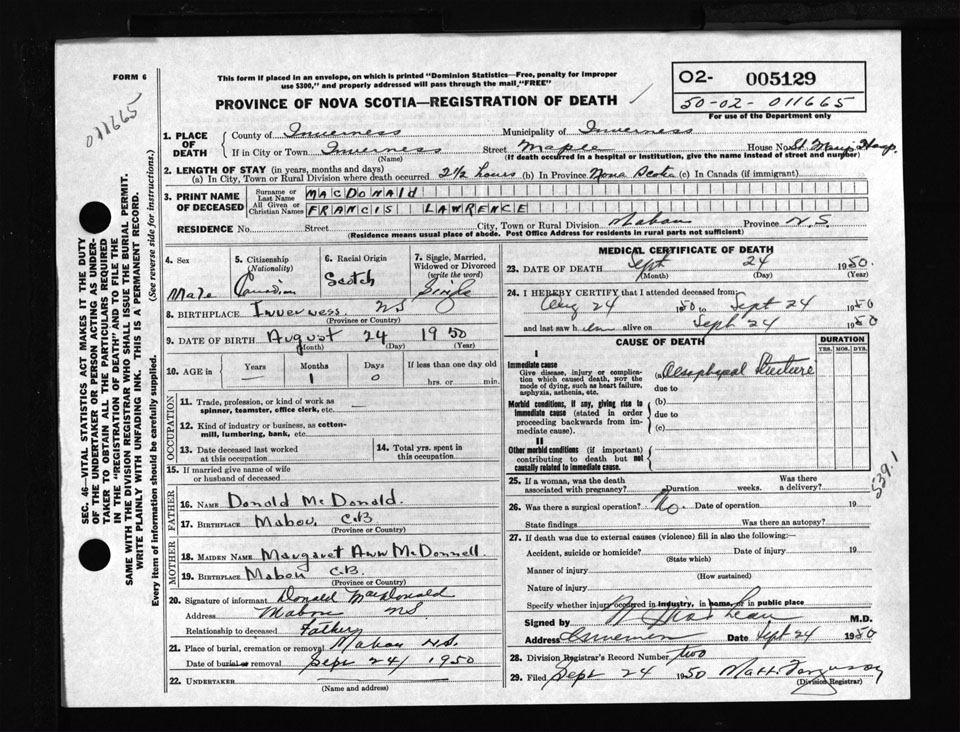 FORM 6
This form if placed in an envelope, on which is printed "Dominion Statistics—Free, penalty for improper
use $300," and properly addressed will pass through the mail, "FREE"
PROVINCE OF NOVA SCOTIA—REGISTRATION OF DEATH
O2- 005129
50-02- 011665
For use of the Department only
011665
1. PLACE OF DEATH
County of Inverness Municipality of Inverness
If in City or Town Inverness Street Maple House No. St Marys Hosp.
(Name) (If death occurred in a hospital or institution, give the name instead of street and number)
2. LENGTH OF STAY (in years, months and days)
(a) In City, Town or Rural Division where death occurred 2½ hours (b) In Province Nova Scotia (c) In Canada (if immigrant)
3. PRINT NAME OF DECEASED
Surname or Last Name MACDONALD
All Given or Christian Names FRANCIS LAWRENCE
RESIDENCE No. Street City, Town or Rural Division Mabou Province N.S.
(Residence means usual place of abode. Post Office Address for residents in rural parts not sufficient)
4. Sex Male
5. Citizenship (Nationality) Canadian
6. Racial Origin Scotch
7. Single, Married, Widowed or Divorced (write the word) Single
8. BIRTHPLACE Inverness NS
(Province or Country)
9. DATE OF BIRTH August 24 1950
(Month) (Day) (Year)
10. AGE in Years — Months 1 Days 0 If less than one day
hrs. or min.
OCCUPATION
11. Trade, profession, or kind of work as spinner, teamster, office clerk, etc. —
12. Kind of industry or business, as cotton-mill, lumbering, bank, etc.
13. Date deceased last worked at this occupation
14. Total yrs. spent in this occupation
15. If married give name of wife or husband of deceased
FATHER
16. NAME Donald McDonald.
17. BIRTHPLACE Mabou, C.B
(Province or Country)
MOTHER
18. MAIDEN NAME Margaret Ann McDonnell
19. BIRTHPLACE Mabou C.B.
(Province or Country)
20. Signature of informant Donald MacDonald
Address Mabou NS
Relationship to deceased Father
21. Place of burial, cremation or removal Mabou N.S.
Date of burial or removal Sept 24/ 1950
22. UNDERTAKER
(Name and address)
MEDICAL CERTIFICATE OF DEATH
23. DATE OF DEATH Sept 24 1950.
(Month) (Day) (Year)
24. I HEREBY CERTIFY that I attended deceased from:
Aug 24 1950 to Sept 24 1950
and last saw him alive on Sept 24 1950
CAUSE OF DEATH
DURATION
YRS. MOS. DYS.
I
Immediate cause
Give disease, injury or complication which caused death, not the mode of dying, such as heart failure, asphyxia, asthenia, etc.
(a) Oesophageal Stricture
due to
Morbid conditions, if any, giving rise to immediate cause (stated in order proceeding backwards from immediate cause).
(b)
due to
(c)
II
Other morbid conditions (if important) contributing to death but not causally related to immediate cause.
539.1
25. If a woman, was the death associated with pregnancy? Duration weeks. Was there a delivery?
26. Was there a surgical operation? No. Date of operation 19
State findings Was there an autopsy?
27. If death was due to external causes (violence) fill in also the following:—
Accident, suicide or homicide? Date of injury 19
(State which)
Manner of injury
(How sustained)
Nature of injury
Specify whether injury occurred in industry, in home, or in public place
Signed by M.D.
Address Inverness Date Sept 24 1950
28. Division Registrar's Record Number two
29. Filed Sept 24 1950 Matt. Ferguson
(Division Registrar)
SEC. 46—VITAL STATISTICS ACT MAKES IT THE DUTY
OF THE UNDERTAKER OR PERSON ACTING AS UNDER-
TAKER TO OBTAIN ALL THE PARTICULARS REQUIRED
IN THE "REGISTRATION OF DEATH" AND TO FILE THE
SAME WITH THE DIVISION REGISTRAR WHO SHALL ISSUE THE BURIAL PERMIT.
WRITE PLAINLY WITH UNFADING INK. THIS IS A PERMANENT RECORD.
Every item of information should be carefully supplied. (See reverse side for instructions.)